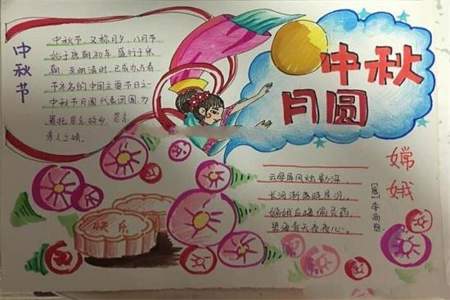 中秋节
中秋节，又称月夕，八月节
始于唐朝初年，盛行于宋
朝，至明清时，已成为与春
节齐名的中国主要节日之一
中秋节月圆代表团圆，为
寄托思念故乡，思念
亲人之情。
中秋
月圆
嫦娥
【唐】李商隐
云母屏风烛影深，
长河渐落晓星沉，
嫦娥应悔偷灵药，
碧海青天夜夜心。
快乐